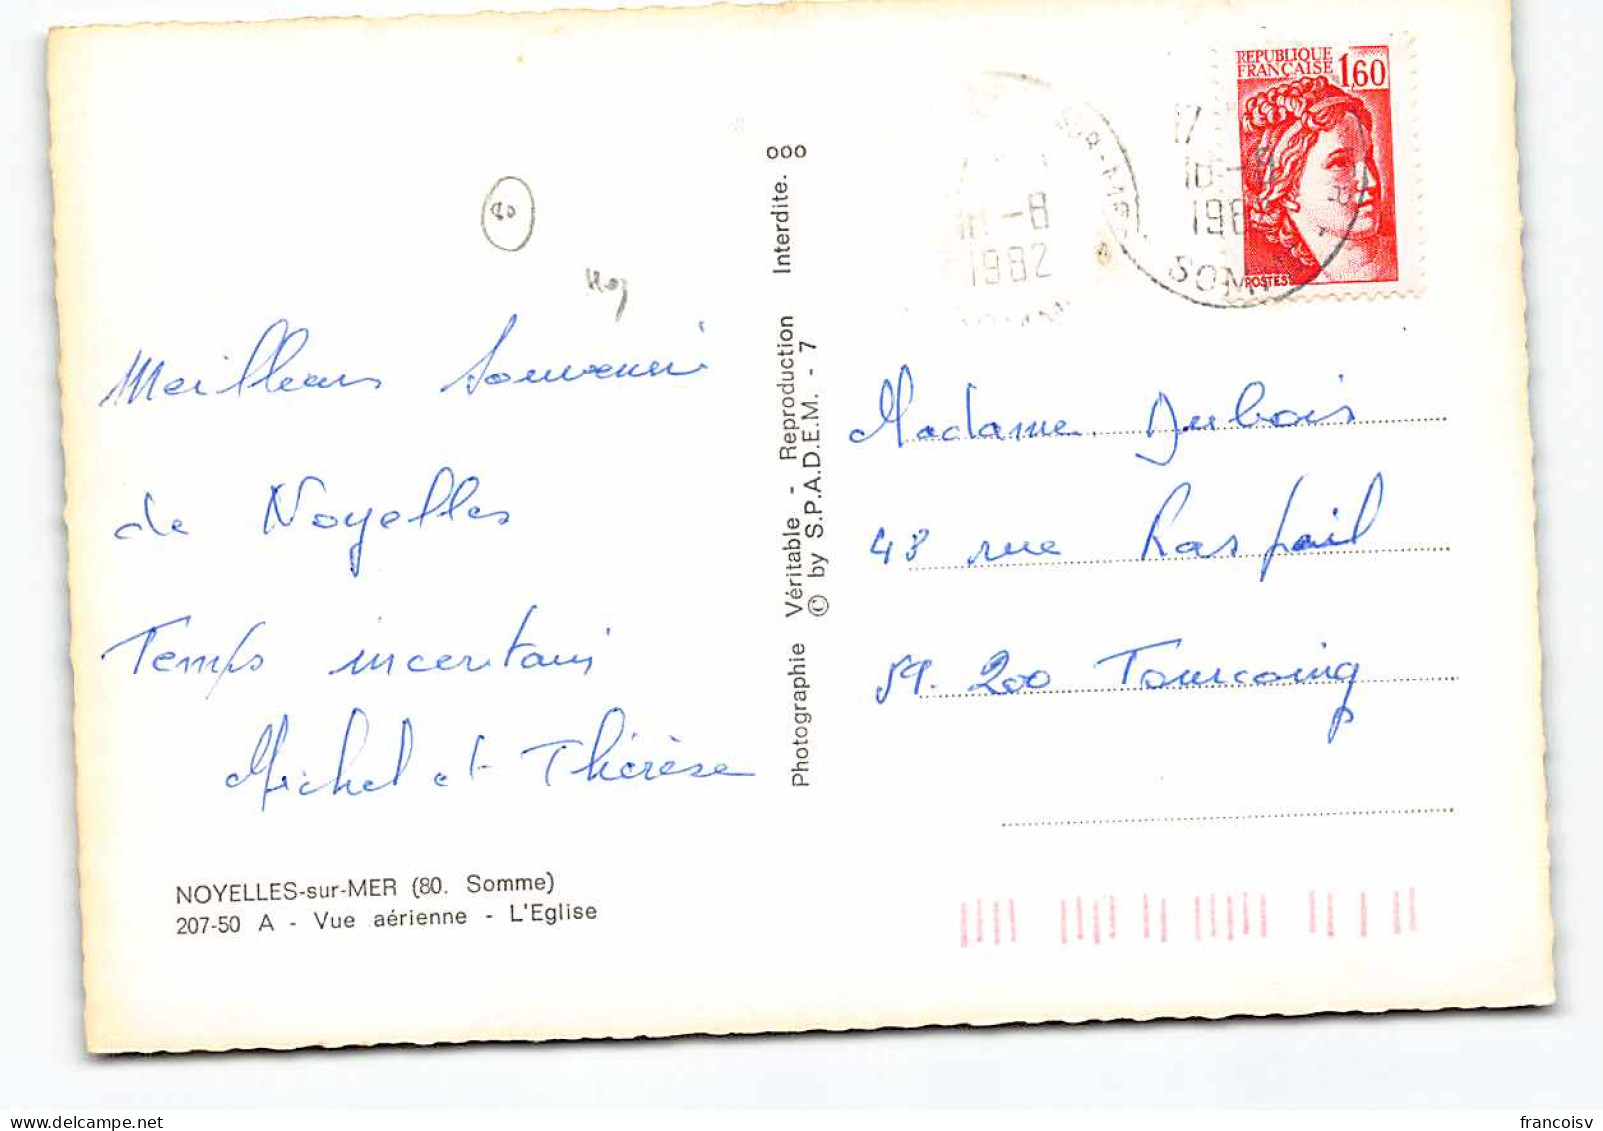 REPUBLIQUE
FRANÇAISE 1,60
POSTES
SUR-MER
17
18 -8
1982
SOMME
18 -8
1982
80
Meilleurs Souvenirs
de Noyelles
Temps incertain
Michel et Thérèse
NOYELLES-sur-MER (80. Somme)
207-50 A - Vue aérienne - L'Eglise
Photographie Véritable - Reproduction Interdite. ooo
© by S.P.A.D.E.M. - 7
Madame Dubois
48 rue Raspail
59.200 Tourcoing
francoisv